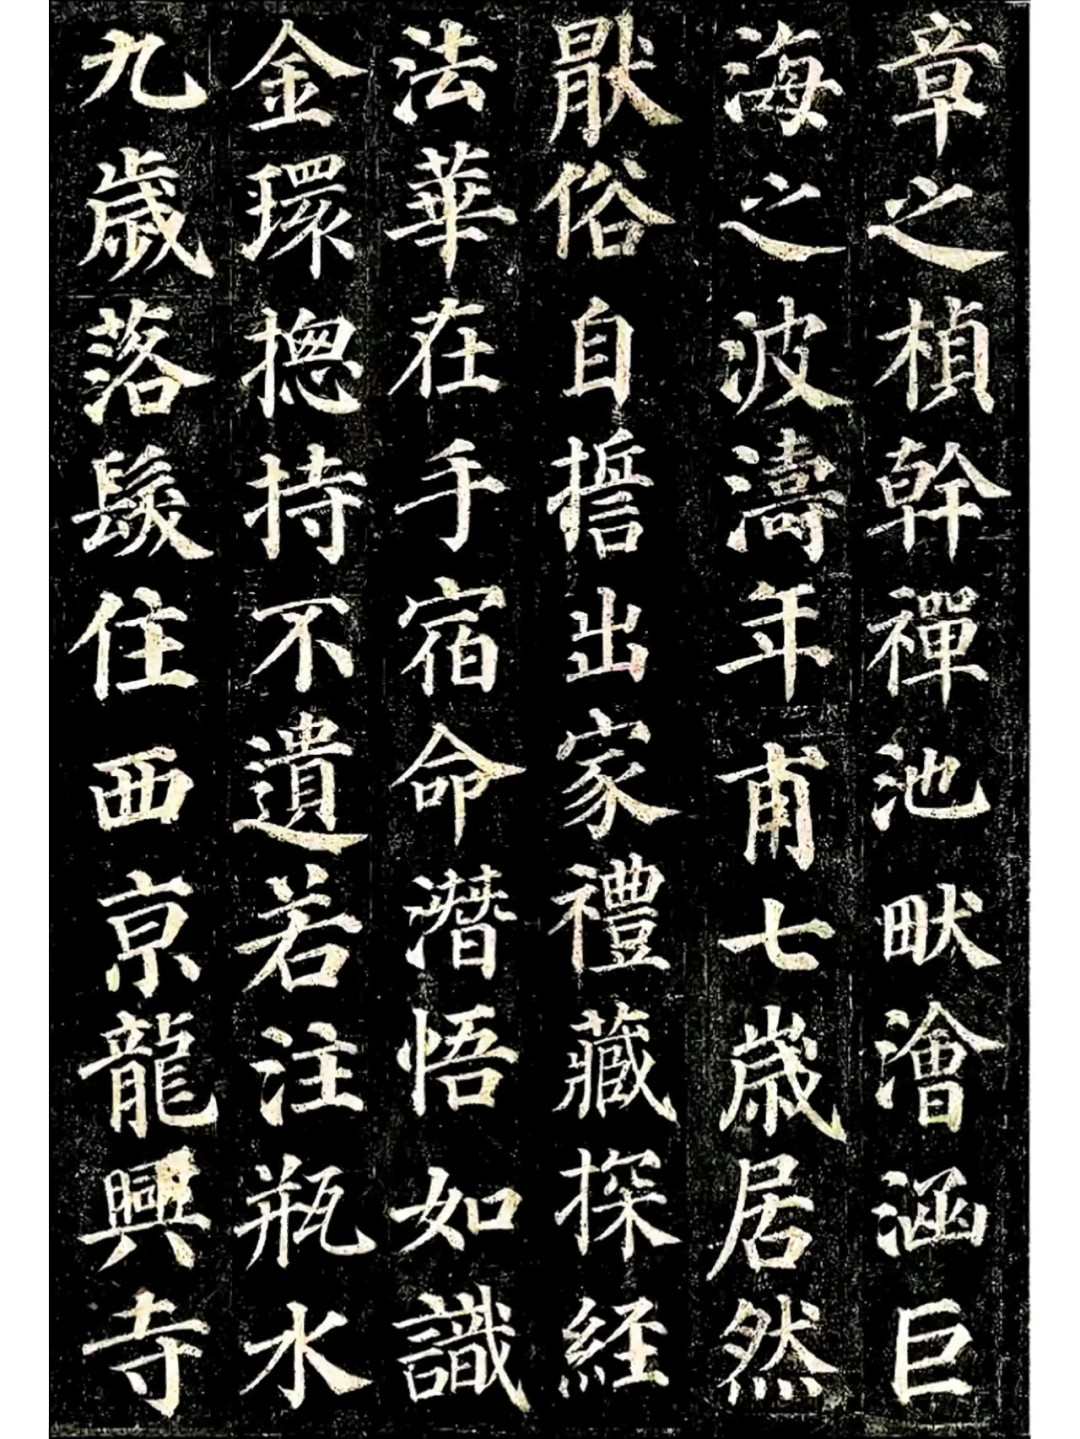 章之楨幹禪池畎澮涵巨
海之波濤年甫七歲居然
厭俗自擔出家禮藏探經
法華在手宿命潛悟如識
金環揔持不遺若注瓶水
九歲落髮住西京龍興寺